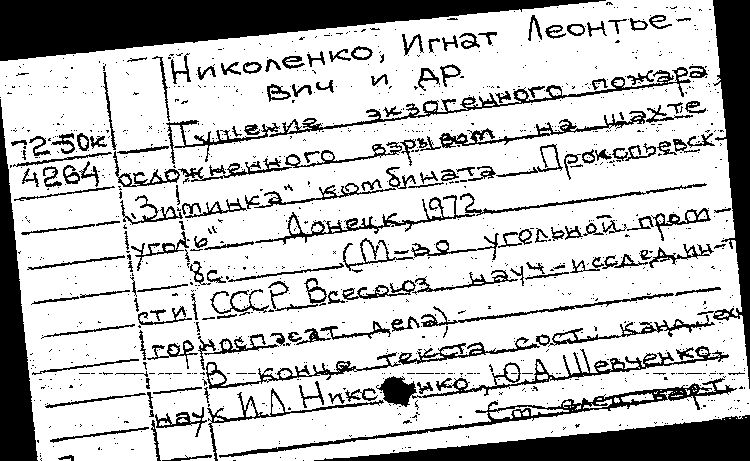 Николенко, Игнат Леонтье-
вич и др.
Тушение экзогенного пожара,
72-50к
осложненного взрывом, на шахте
4264
"Зиминка" комбината "Прокопьевск-
уголь". Донецк, 1972.
8с. (М-во угольной пром-
сти СССР. Всесоюз науч-исслед. ин-т
горноспасат дела)
В конце текста сост.: канд. техн
наук И.Л. Николенко, Ю.А. Шевченко,
См. след. карт.